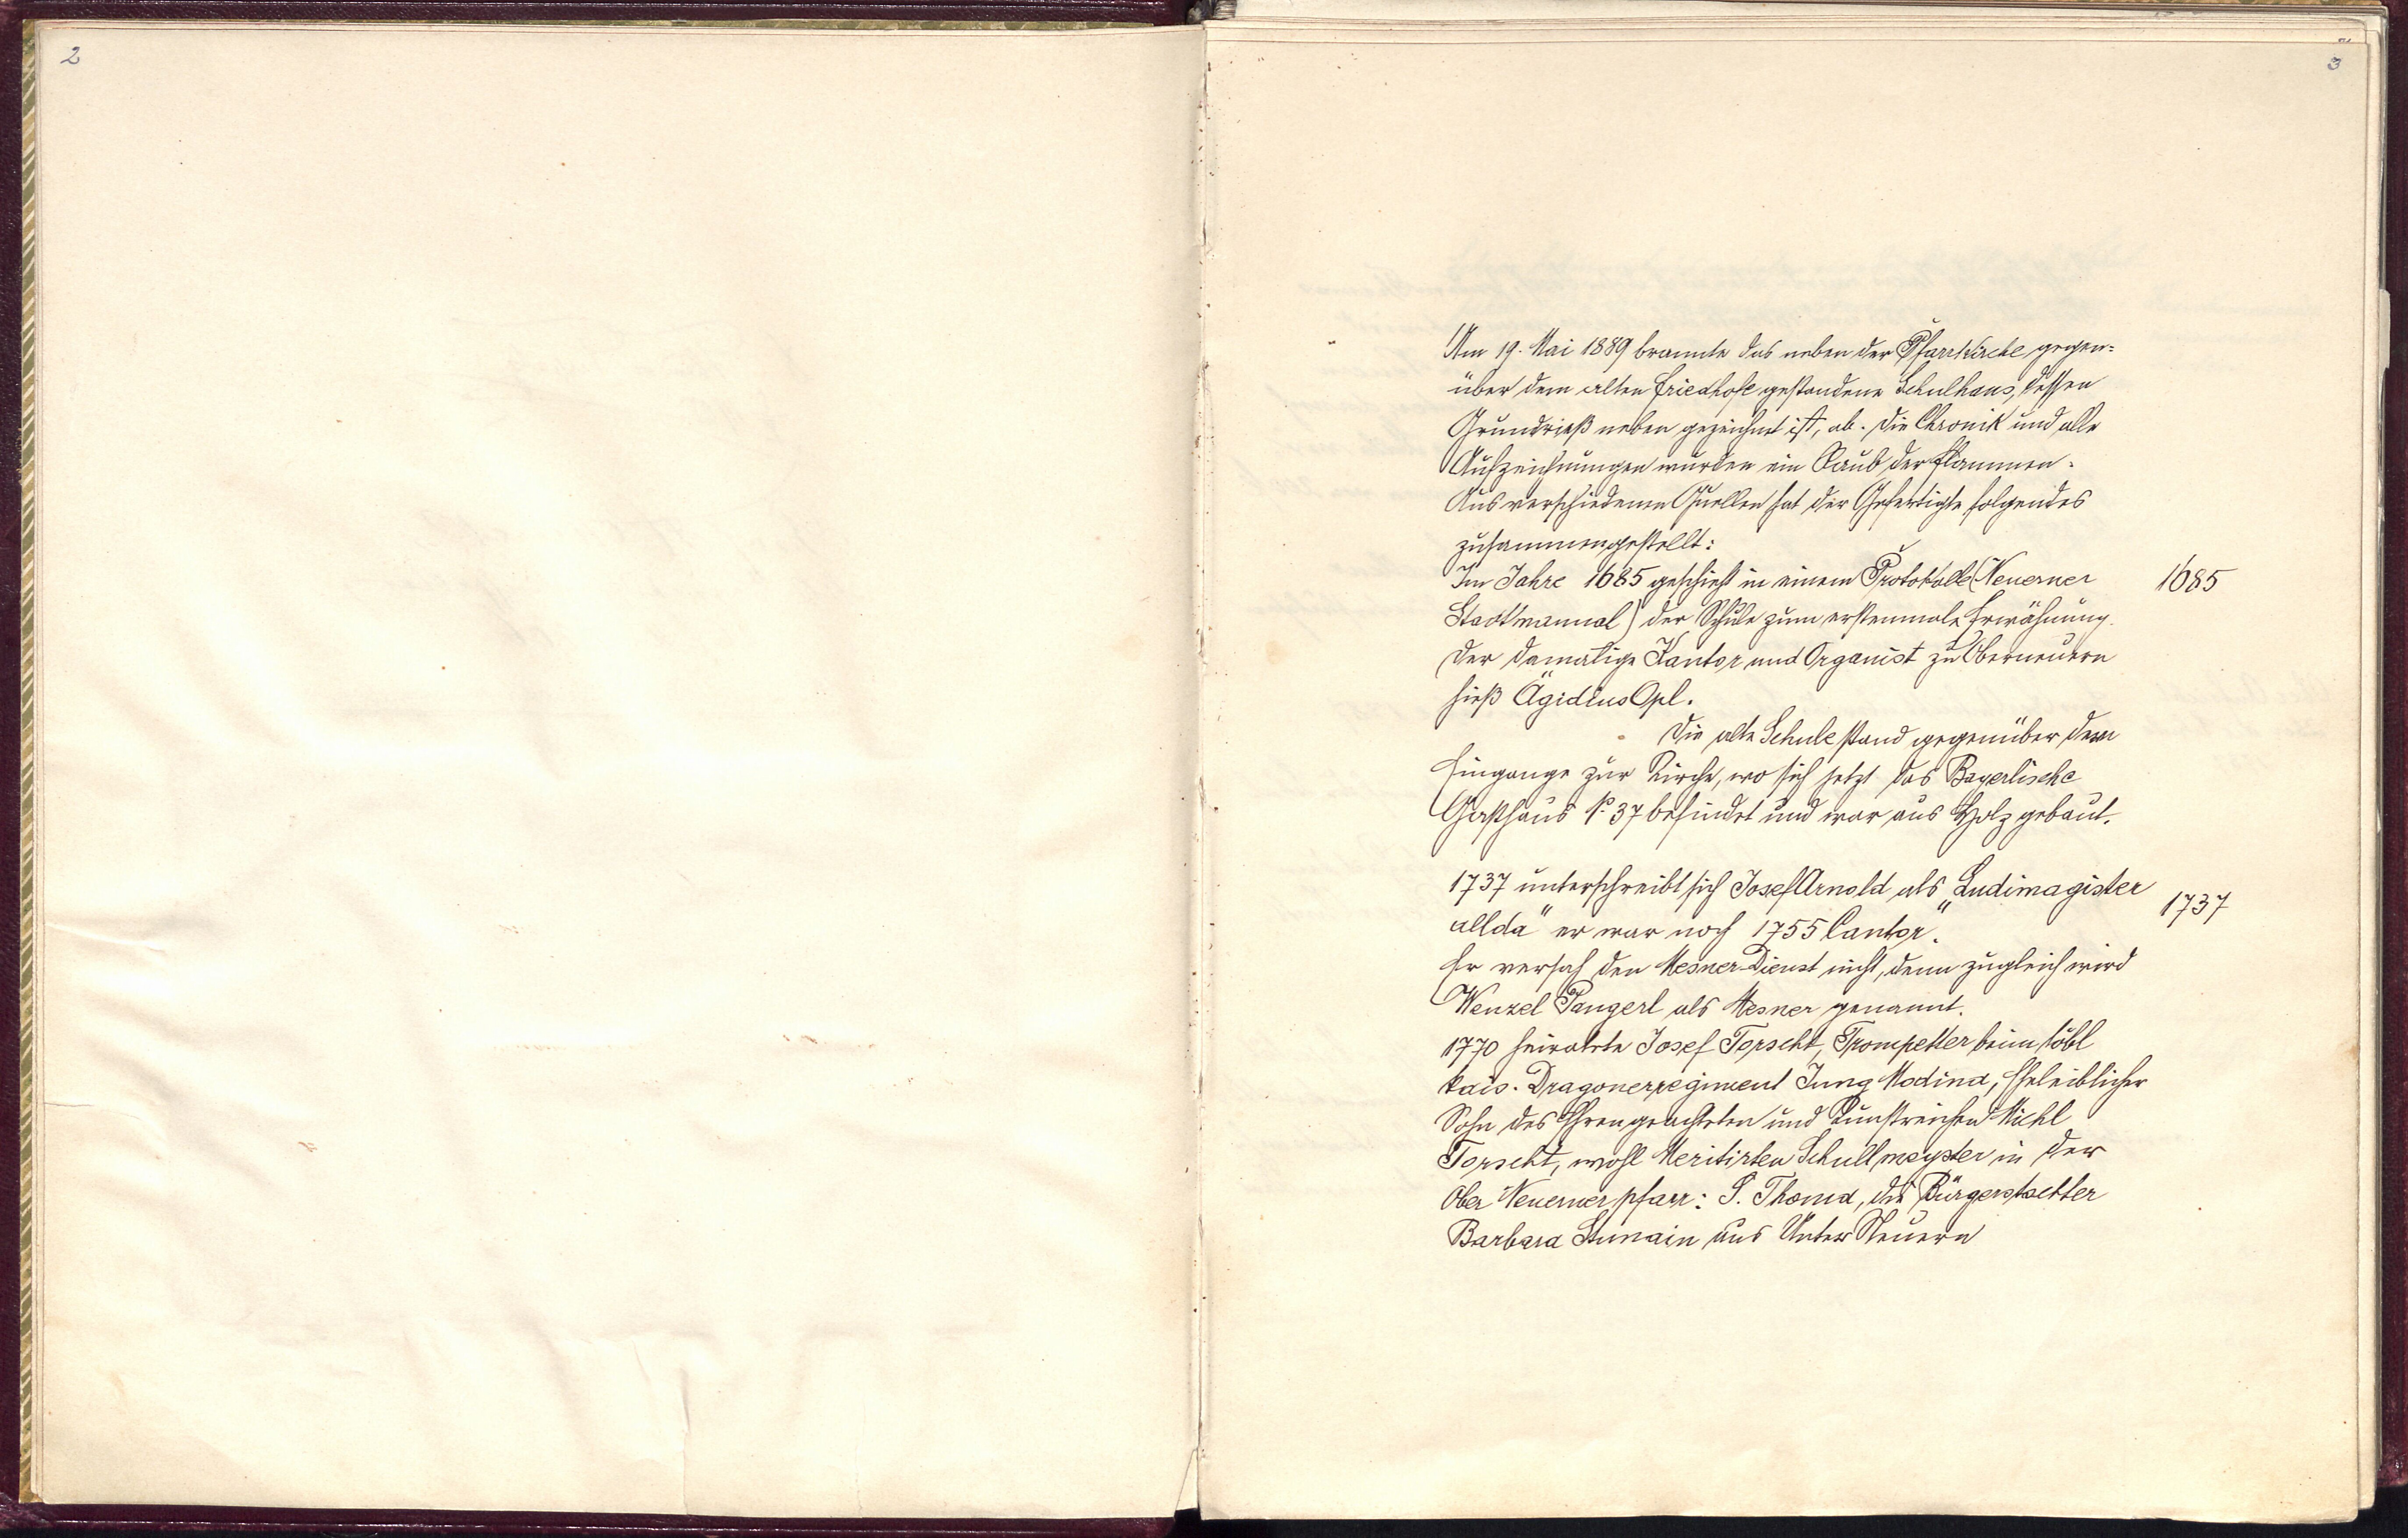 2
3
Am 19. Mai 1889 brannte das neben der Pfarrkirche gegen=
über dem alten Friedhofe gestandene Schulhaus, dessen
Grundriß neben gezeichnet ist, ab. Die Chronik und alle
Aufzeichnungen wurden ein Raub der Flammen.
Aus verschiedenen Quellen hat der Gefertigte folgendes
zusammengestellt:
Im Jahre 1685 geschieht in einem Protokolle (Neuerner
1685
Stadtmanual) der Schule zum erstenmale Erwähnung.
Der damalige Kantor und Organist zu Oberneuern
hieß Ägidius Opl.
Die alte Schule stand gegenüber dem
Eingange zur Kirche, wo sich jetzt das Bayerlische
Gasthaus No. 37 befindet und war aus Holz gebaut.
1737 unterschreibt sich Josef Arnold als „Ludimagister
1737
allda" er war noch 1755 „Cantor.
Er versah den Mesner-Dienst nicht, denn zugleich wird
Wenzel Pangerl als Mesner genannt.
1770 heiratete Josef Torscht, Trompetter beim löbl
kais. Dragonerregiment Jung Modina, Eheleiblicher
Sohn des Ehrengeachteten und Kunstreichen Michl
Torscht, wohl Meritirten Schullmeyster in der
Ober Neuerner pfarr: S. Thoma, die Bürgerstochter
Barbara aus Unter Neuern